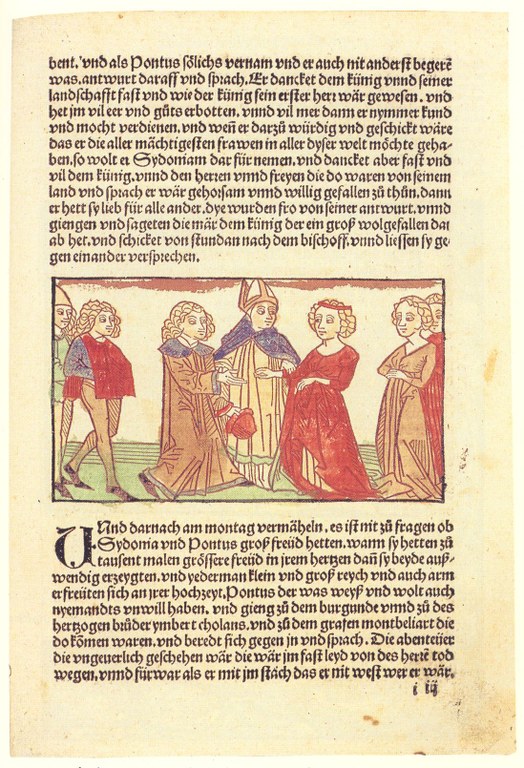 bent. vnd als Pontus sőlichs vernam vnd er auch nit anderst begerẽ
was. antwurt daraff vnd sprach. Er dancket dem kűnig vnnd seiner
landschafft fast vnd wie der kűnig sein erster herr wår gewesen. vnd
het jm vil eer vnd gůts erbotten. vnnd vil mer dann er nymmer kund
vnd mocht verdienen. vnd weñ er darzů wűrdig vnd geschickt wåre
das er die aller måchtigesten frawen in aller dyser welt mőchte geha-
ben. so wolt er Sydoniam dar fűr nemen. vnd dancket aber fast vnd
vil dem kűnig. vnnd den herren vnnd freyen die do waren von seinem
land vnd sprach er wår gehorsam vnnd willig gefallen zů thůn. dann
er hett sy lieb fűr alle ander. dye wurden fro von seiner antwurt. vnnd
giengen vnd sageten die mår dem kűnig der ein groß wolgefallen dar
ab het. vnd schicket von stundan nach dem bischoff. vnnd liessen sy ge-
gen einander versprechen.
VNnd darnach am montag vermåheln. es ist nit zů fragen ob
Sydonia vnd Pontus groß freűd hetten. wann sy hetten zů
tausent malen grőssere freűd in jrem hertzen dañ sy beyde auß-
wendig erzeygten. vnd yederman klein vnd groß reych vnd auch arm
erfreűten sich an jrer hochzeyt. Pontus der was weyß vnd wolt auch
nyemandts vnwill haben. vnd gieng zů dem burgunde vnnd zů des
hertzogen brůder ymbert cholans. vnd zů dem grafen montbeliart die
do kőmen waren. vnd beredt sich gegen jn vnd sprach. Die abenteűer
die vngeuerlich geschehen wår die wår jm fast leyd von des herrẽ tod
wegen. vnnd fűrwar als er mit jm ståch das er nit west wer er wår.
i iij